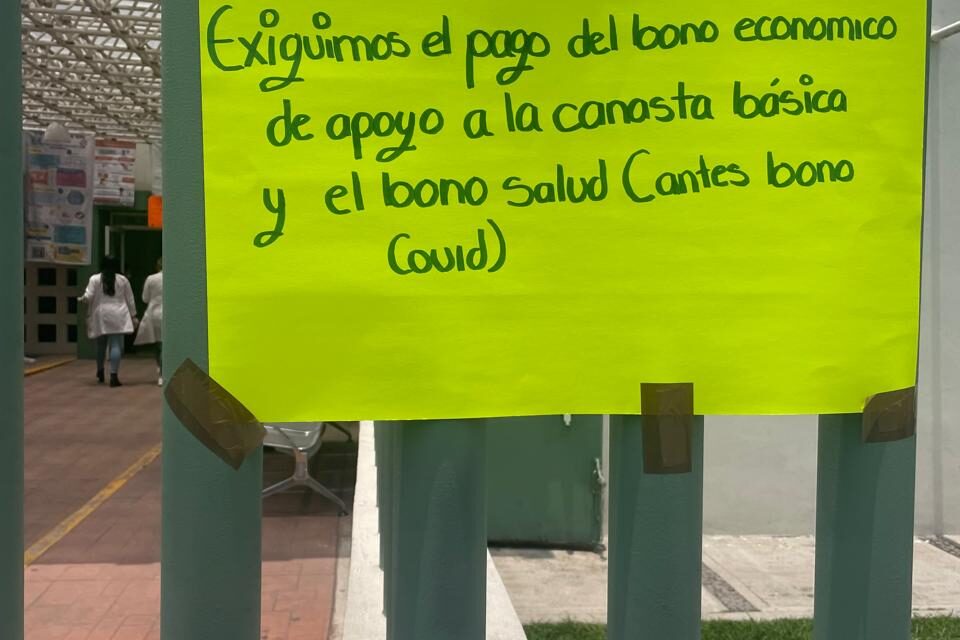 Exiguimos el pago del bono economico
de apoyo a la canasta básica
y el bono salud (antes bono
Covid)